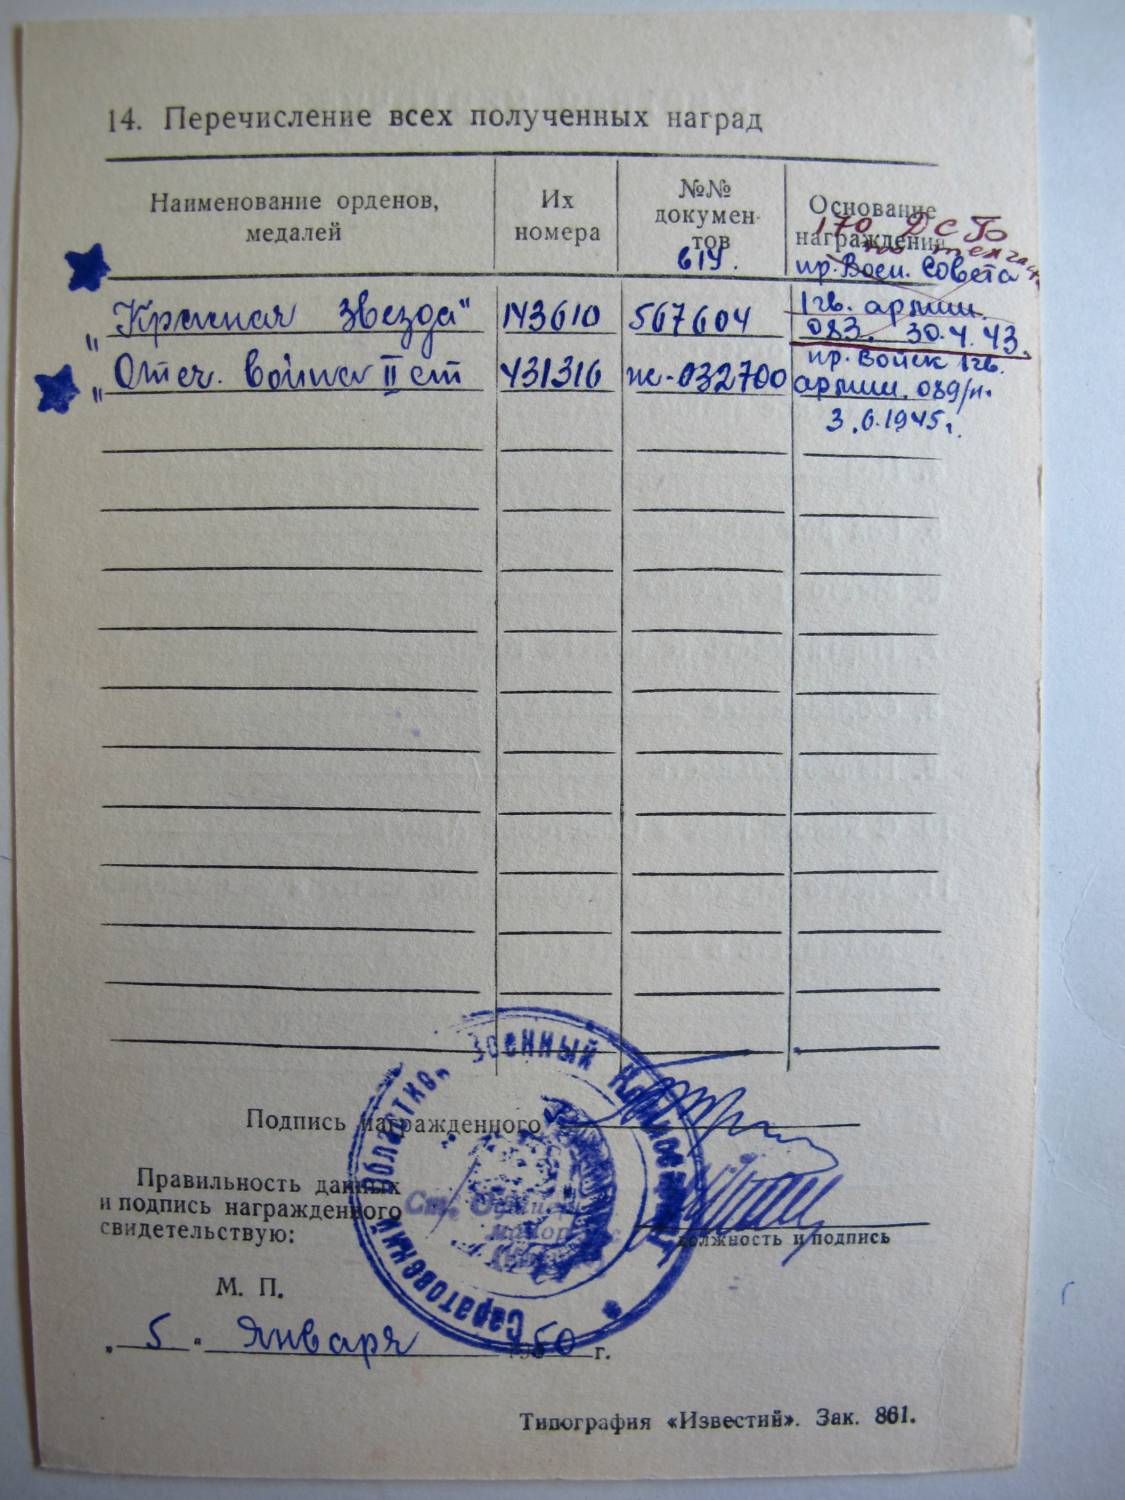 14. Перечисление всех полученных наград
Наименование орденов, медалей
Их номера
№№ докумен-тов
614.
Основание награждения
170 ДСГО
пр. Воен. Совета
"Красная Звезда" 143610 567604 1 гв. армии.
083. 30.4.43.
"Отеч. война II ст 431316 ж-032700 пр. Войск 1 гв.
армии. 089/н.
3.6.1945г.
Подпись награжденного
Правильность данных
и подпись награжденного
свидетельствую:
должность и подпись
Саратовский Областной Военный Комиссариат
Ст. Офицер
майор
М. П.
"5" Января 1950 г.
Типография «Известий». Зак. 861.